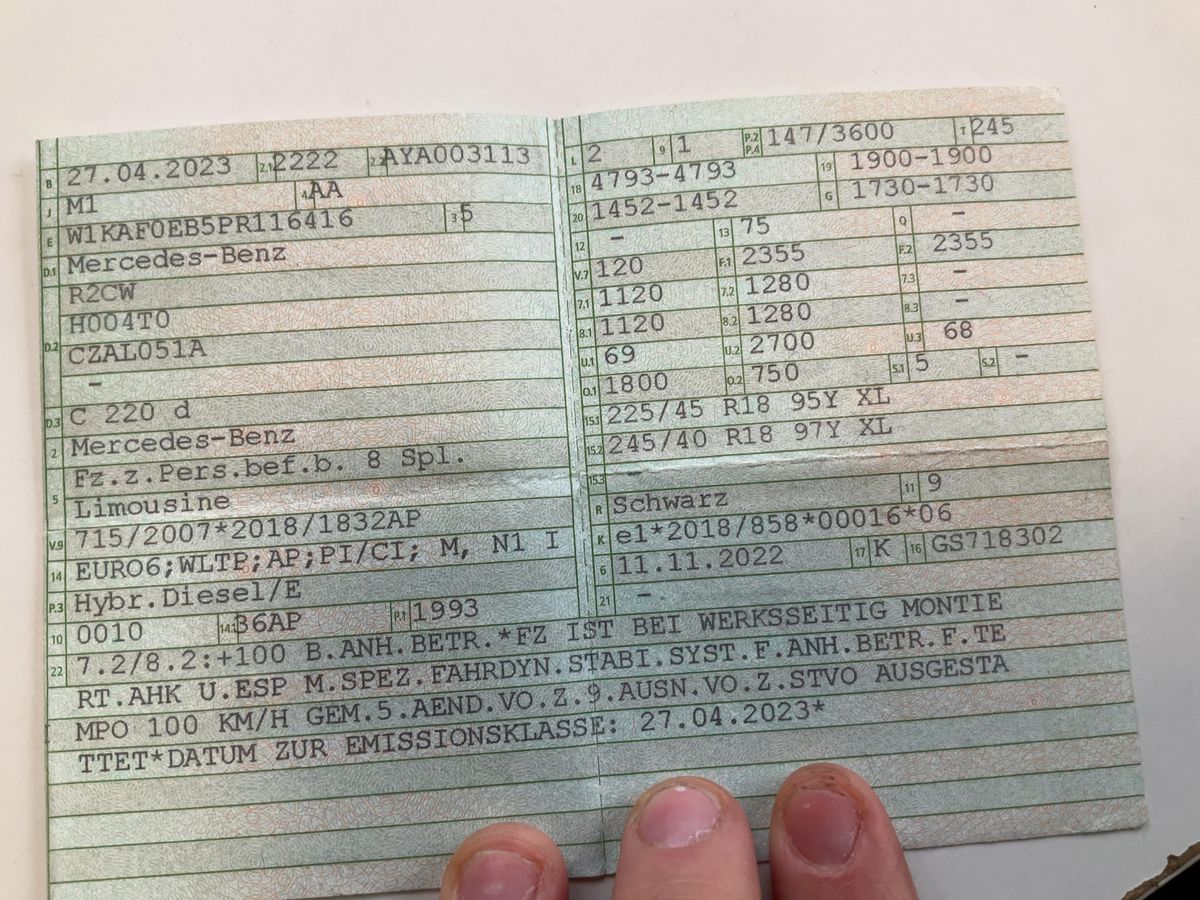 B 27.04.2023 2.1 2222 2.2 AYA003113
J M1 4 AA
E W1KAF0EB5PR116416 3 5
D.1 Mercedes-Benz
R2CW
D.2 H004T0
CZAL051A
-
D.3 C 220 d
2 Mercedes-Benz
5 Fz.z.Pers.bef.b. 8 Spl.
Limousine
V.9 715/2007*2018/1832AP
14 EURO6;WLTP;AP;PI/CI; M, N1 I
P.3 Hybr.Diesel/E
10 0010 14.1 36AP P.1 1993
L 2 9 1 P.2 P.4 147/3600 T 245
18 4793-4793 19 1900-1900
20 1452-1452 G 1730-1730
12 - 13 75 Q -
V.7 120 F.1 2355 F.2 2355
7.1 1120 7.2 1280 7.3 -
8.1 1120 8.2 1280 8.3 -
U.1 69 U.2 2700 U.3 68
O.1 1800 O.2 750 S.1 5 S.2 -
15.1 225/45 R18 95Y XL
15.2 245/40 R18 97Y XL
15.3 -
R Schwarz 11 9
K e1*2018/858*00016*06
6 11.11.2022 17 K 16 GS718302
21 -
22 7.2/8.2:+100 B.ANH.BETR.*FZ IST BEI WERKSSEITIG MONTIE
RT.AHK U.ESP M.SPEZ.FAHRDYN.STABI.SYST.F.ANH.BETR.F.TE
MPO 100 KM/H GEM.5.AEND.VO.Z.9.AUSN.VO.Z.STVO AUSGESTA
TTET*DATUM ZUR EMISSIONSKLASSE: 27.04.2023*